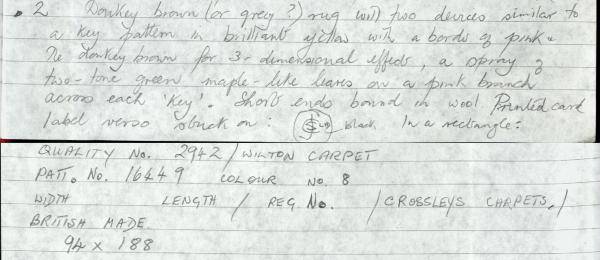 . 2 Donkey brown (or grey?) rug with two devices similar to
a key pattern in brilliant yellow with a border of pink &
the donkey brown for 3-dimensional effect, a spray of
two-tone green maple-like leaves on a pink branch
across each 'key'. Short ends bound in wool Printed card
label verso stuck on: black In a rectangle:
QUALITY No. 2942 / WILTON CARPET
PATT. No. 16449 COLOUR No. 8
WIDTH LENGTH / REG No. / CROSSLEYS CARPETS. /
BRITISH MADE
94 x 188